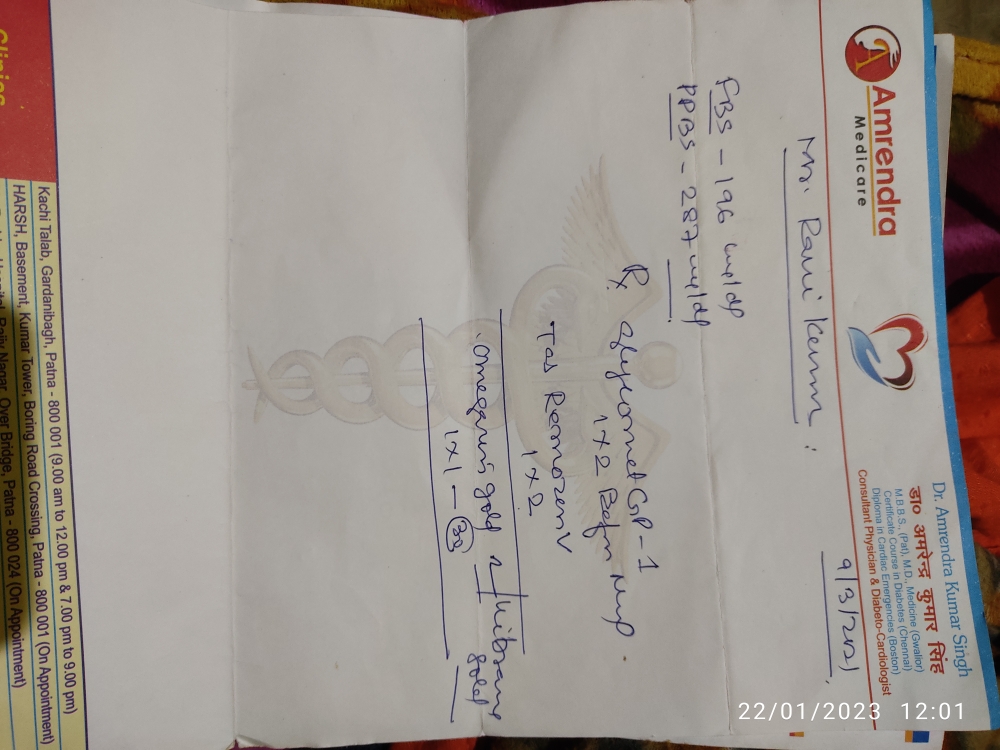 Amrendra
Medicare
Dr. Amrendra Kumar Singh
डा० अमरेन्द्र कुमार सिंह
M.B.B.S., (Pat), M.D., Medicine (Gwalior)
Certificate Course in Diabetes (Chennai)
Diploma in Cardiac Emergencies (Boston)
Consultant Physician & Diabeto-Cardiologist
9/3/2021
Mr. Ravi
FBS - 196 mg/dl
PPBS - 287 mg/dl
Rx Glycomet GP-1
1x2
Tab V
1x2
gold
gold
1x1 - 30
Clinics
Kachi Talab, Gardanibagh, Patna - 800 001 (9.00 am to 12.00 pm & 7.00 pm to 9.00 pm)
HARSH, Basement, Kumar Tower, Boring Road Crossing, Patna - 800 001 (On Appointment)
Hospital, Rajiv Nagar, Over Bridge, Patna - 800 024 (On Appointment)
22/01/2023 12:01